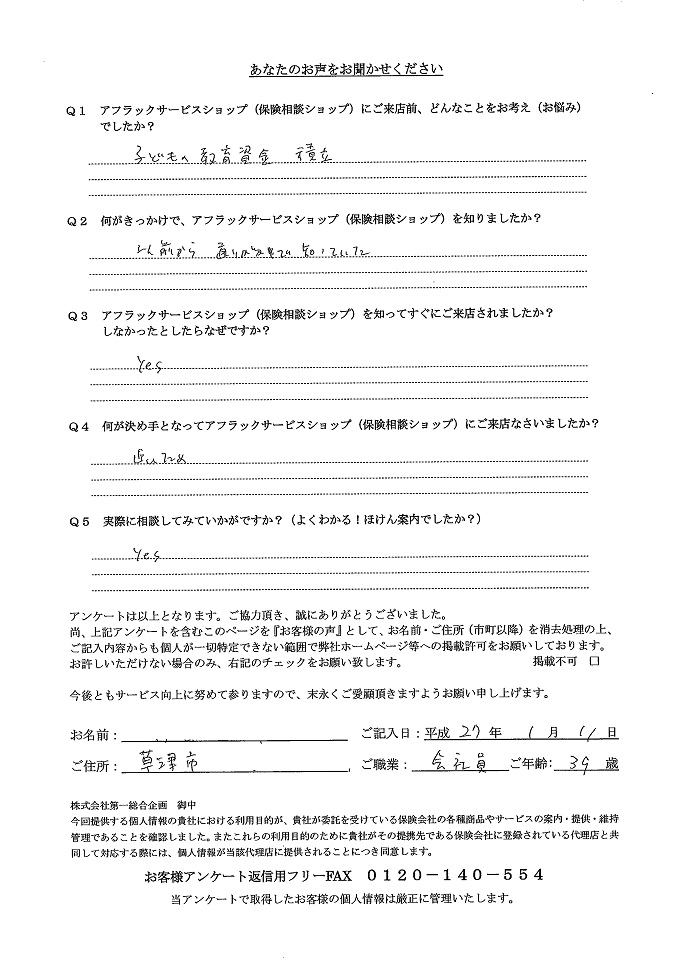 あなたのお声をお聞かせください
Q1 アフラックサービスショップ（保険相談ショップ）にご来店前、どんなことをお考え（お悩み）
でしたか？
子どもの教育資金 積立
Q2 何がきっかけで、アフラックサービスショップ（保険相談ショップ）を知りましたか？
以前から 通りがかりで 知っていた
Q3 アフラックサービスショップ（保険相談ショップ）を知ってすぐにご来店されましたか？
しなかったとしたらなぜですか？
Yes
Q4 何が決め手となってアフラックサービスショップ（保険相談ショップ）にご来店なさいましたか？
近いため
Q5 実際に相談してみていかがですか？（よくわかる！ほけん案内でしたか？）
Yes
アンケートは以上となります。ご協力頂き、誠にありがとうございました。
尚、上記アンケートを含むこのページを『お客様の声』として、お名前・ご住所（市町以降）を消去処理の上、
ご記入内容からも個人が一切特定できない範囲で弊社ホームページ等への掲載許可をお願いしております。
お許しいただけない場合のみ、右記のチェックをお願い致します。 掲載不可 □
今後ともサービス向上に努めて参りますので、末永くご愛顧頂きますようお願い申し上げます。
お名前： ご記入日：平成 27 年 1 月 11 日
ご住所： 草津市 ご職業： 会社員 ご年齢： 39 歳
株式会社第一総合企画 御中
今回提供する個人情報の貴社における利用目的が、貴社が委託を受けている保険会社の各種商品やサービスの案内・提供・維持
管理であることを確認しました。またこれらの利用目的のために貴社がその提携先である保険会社に登録されている代理店と共
同して対応する際には、個人情報が当該代理店に提供されることにつき同意します。
お客様アンケート返信用フリーFAX 0120－140－554
当アンケートで取得したお客様の個人情報は厳正に管理いたします。